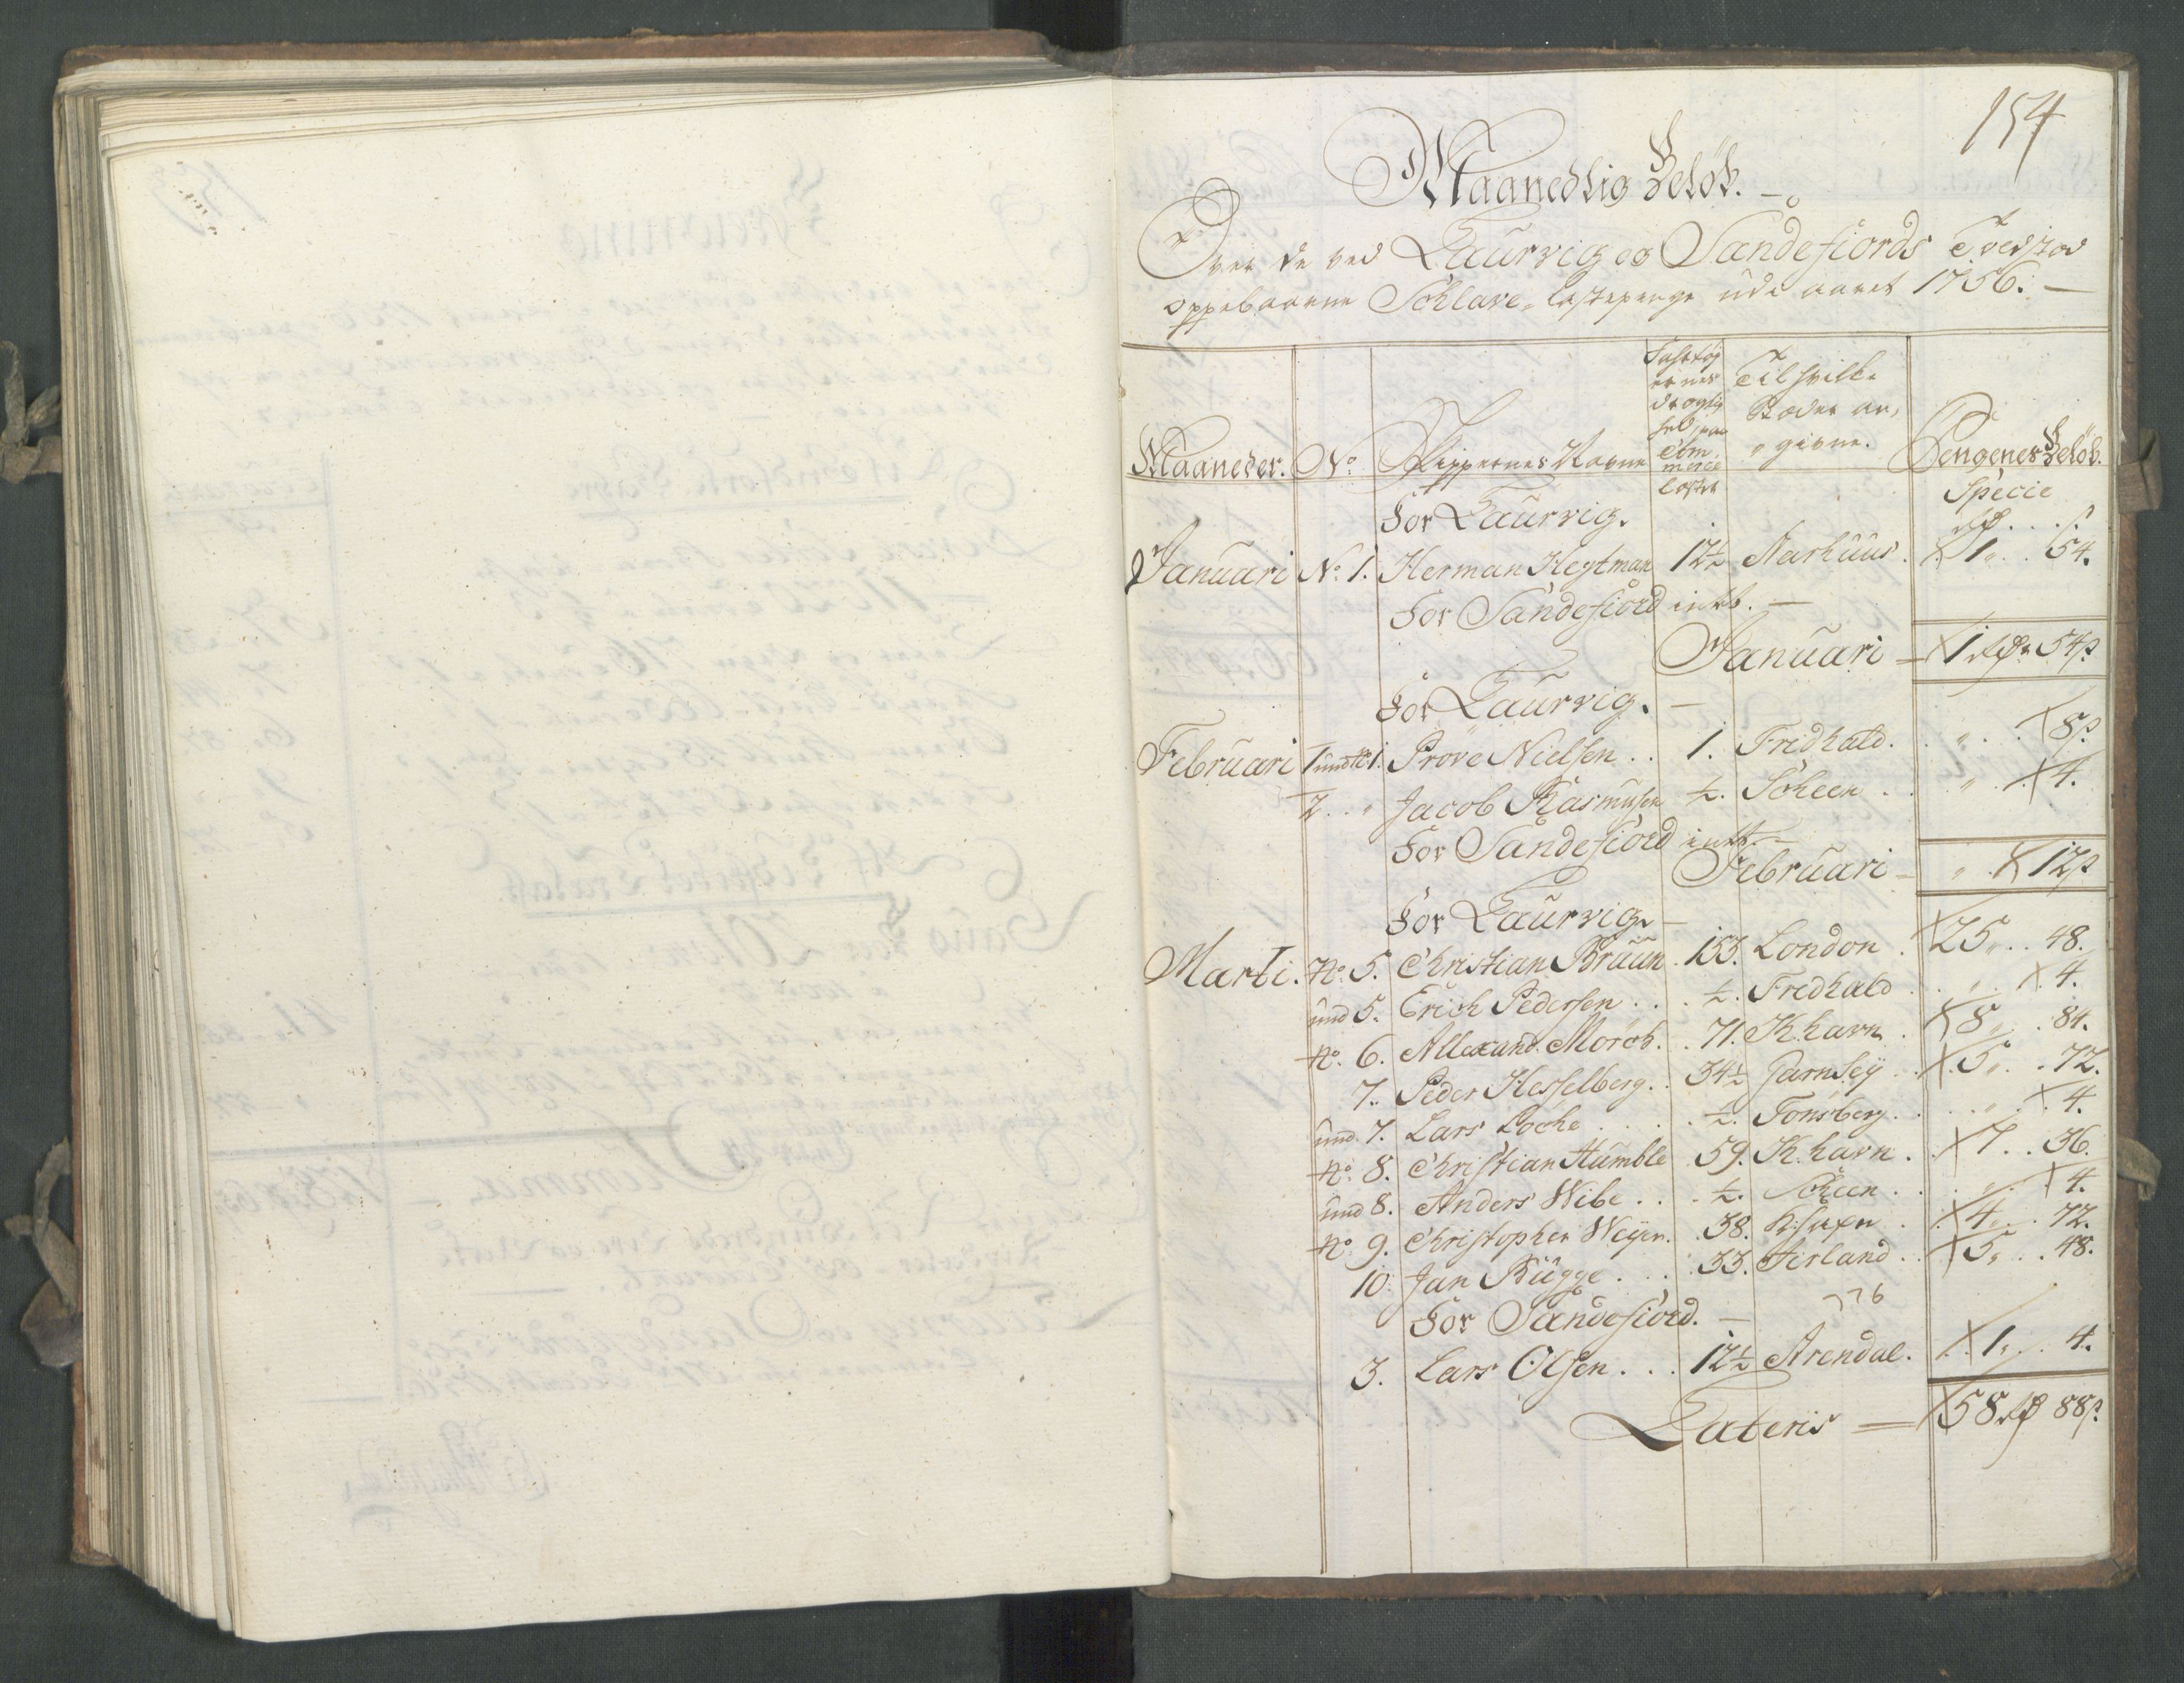 154
Maanedlig Beløb.
Over de ved Laurvig og Sandefiords Toldsted
oppebaarne Schlave-Lastepenge udi aaret 1756.
Maaneder. No Skippernes Navne Fahrtøjernes drægtighed paa Commerce Læster Til hvilke Stæder angivne. Pengenes Beløb.
Specie
For Laurvig. rdr . . s
Januari No 1. Herman Heytman 12½ Aarhuus. 1 „ . 54.
For Sandefiord intt.
Januari = 1 rdr 54 s
For Laurvig.
Februari 1 und No 1. Prove Nielsen . . 1. Fridhald. „ . 8 s
2 . . „ Jacob Rasmusen ½. Scheen . . „ . 4.
For Sandefiord intt.
Februari „ . 12 s
For Laurvig.
Marti. No 5. Christian Bruun . 153. London . 25 „ . . 48.
und 5. Erich Pedersen . . . ½. Fredhald . . „ . 4.
No 6. Allexand. Morch. . 71. K.havn . 8 „ . 84.
7. Peder Hesselberg. . 34½ Garnsey . . 5 „ . . 72.
und 7. Lars Loche . . . . ½. Tonsberg. . . „ . 4.
No 8. Christian Humble 59. K.havn . 7 . . 36.
und 8. Anders Wibe . . . ½. Scheen . . „ . 4.
No 9. Christopher Weyer. . 38. . 4 „ . . 72.
10. Jan Bugge . . . . 33. Airland . . 5 „ . . 48.
For Sandefiord.
3. Lars Olsen . . . 12½ Arendal. . 1 „ . 4.
Lateris = 58 rdr 88 s